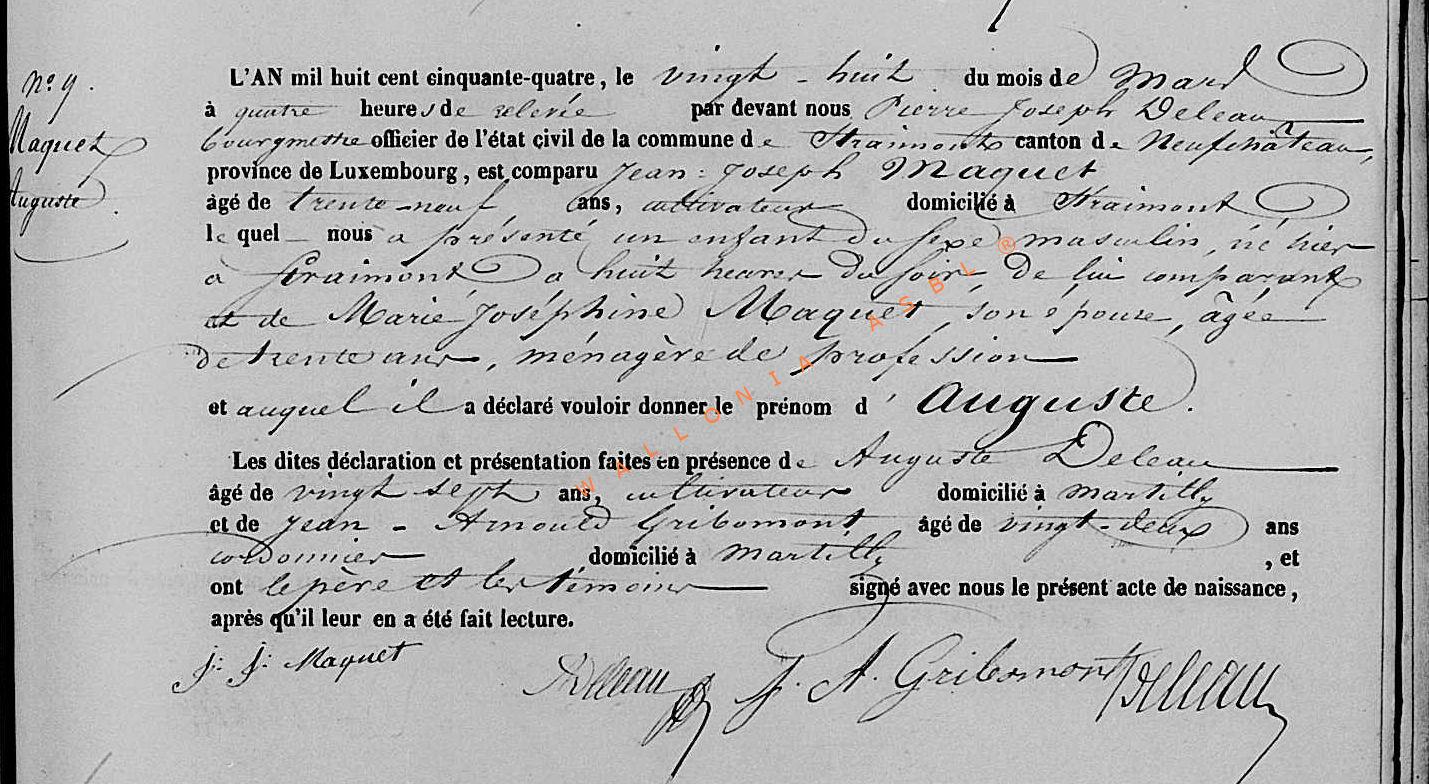 N° 9.
Maquet
Auguste
L'AN mil huit cent cinquante-quatre, le vingt-huit du mois de Mars
à quatre heures de relevée par devant nous Pierre Joseph Deleau
bourgmestre officier de l'état civil de la commune de Straimont canton de Neufchâteau,
province de Luxembourg, est comparu Jean-Joseph Maquet
âgé de trente-neuf ans, cultivateur domicilié à Straimont
lequel nous a présenté un enfant du sexe masculin, né hier
à Straimont à huit heures du soir, de lui comparant
et de Marie Joséphine Maquet, son épouse, âgée
de trente ans, ménagère de profession
et auquel il a déclaré vouloir donner le prénom d'Auguste.
Les dites déclaration et présentation faites en présence de Auguste Deleau
âgé de vingt sept ans, cultivateur domicilié à Martilly
et de Jean-Arnould Gribomont âgé de vingt-deux ans
cordonnier domicilié à Martilly, et
ont le père et les témoins signé avec nous le présent acte de naissance,
après qu'il leur en a été fait lecture.
J: J: Maquet ADeleau J. A. Gribomont Deleau
WALLONIA ASBL ®